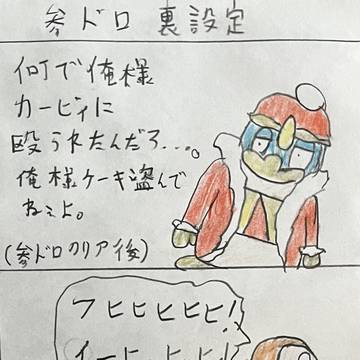 参ドロ 裏設定
何で俺様
カービィに
殴られたんだろ...。
俺様ケーキ盗んで
ねぇよ。
(参ドロクリア後)
フヒヒヒヒヒ!